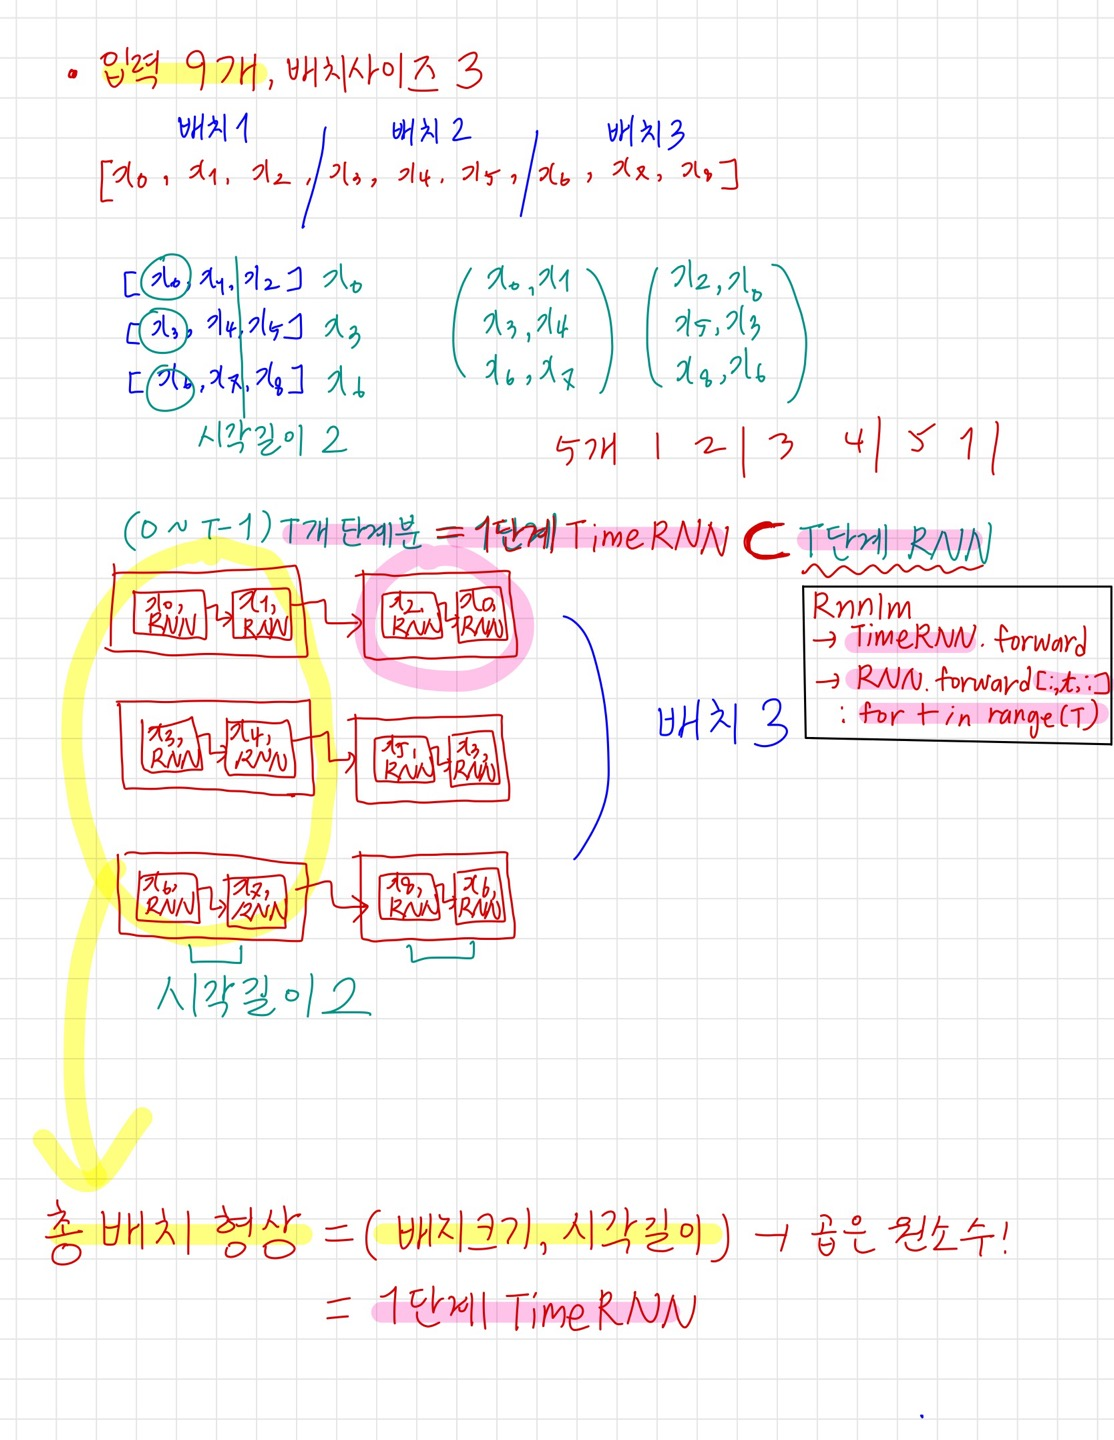 • 입력 9개, 배치사이즈 3
배치1 / 배치2 / 배치3
[x0, x1, x2, / x3, x4, x5, / x6, x7, x8]
[x0, x1, x2] x0
[x3, x4, x5] x3
[x6, x7, x8] x6
시각길이 2
(x0, x1
x3, x4
x6, x7)
(x2, x0
x5, x3
x8, x6)
5개 1 2 | 3 4 | 5 1 |
(0 ~ T-1) T개 단계분 = 1단계 TimeRNN ⊂ T단계 RNN
x0, RNN x1, RNN x2, RNN x0, RNN
x3, RNN x4, RNN x5, RNN x3, RNN
x6, RNN x7, RNN x8, RNN x6, RNN
배치 3
시각길이 2
Rnnlm
→ TimeRNN.forward
→ RNN.forward[:,t,:]
: for t in range(T)
총 배치 형상 = (배치크기, 시각길이) → 곱은 원소수!
= 1단계 TimeRNN